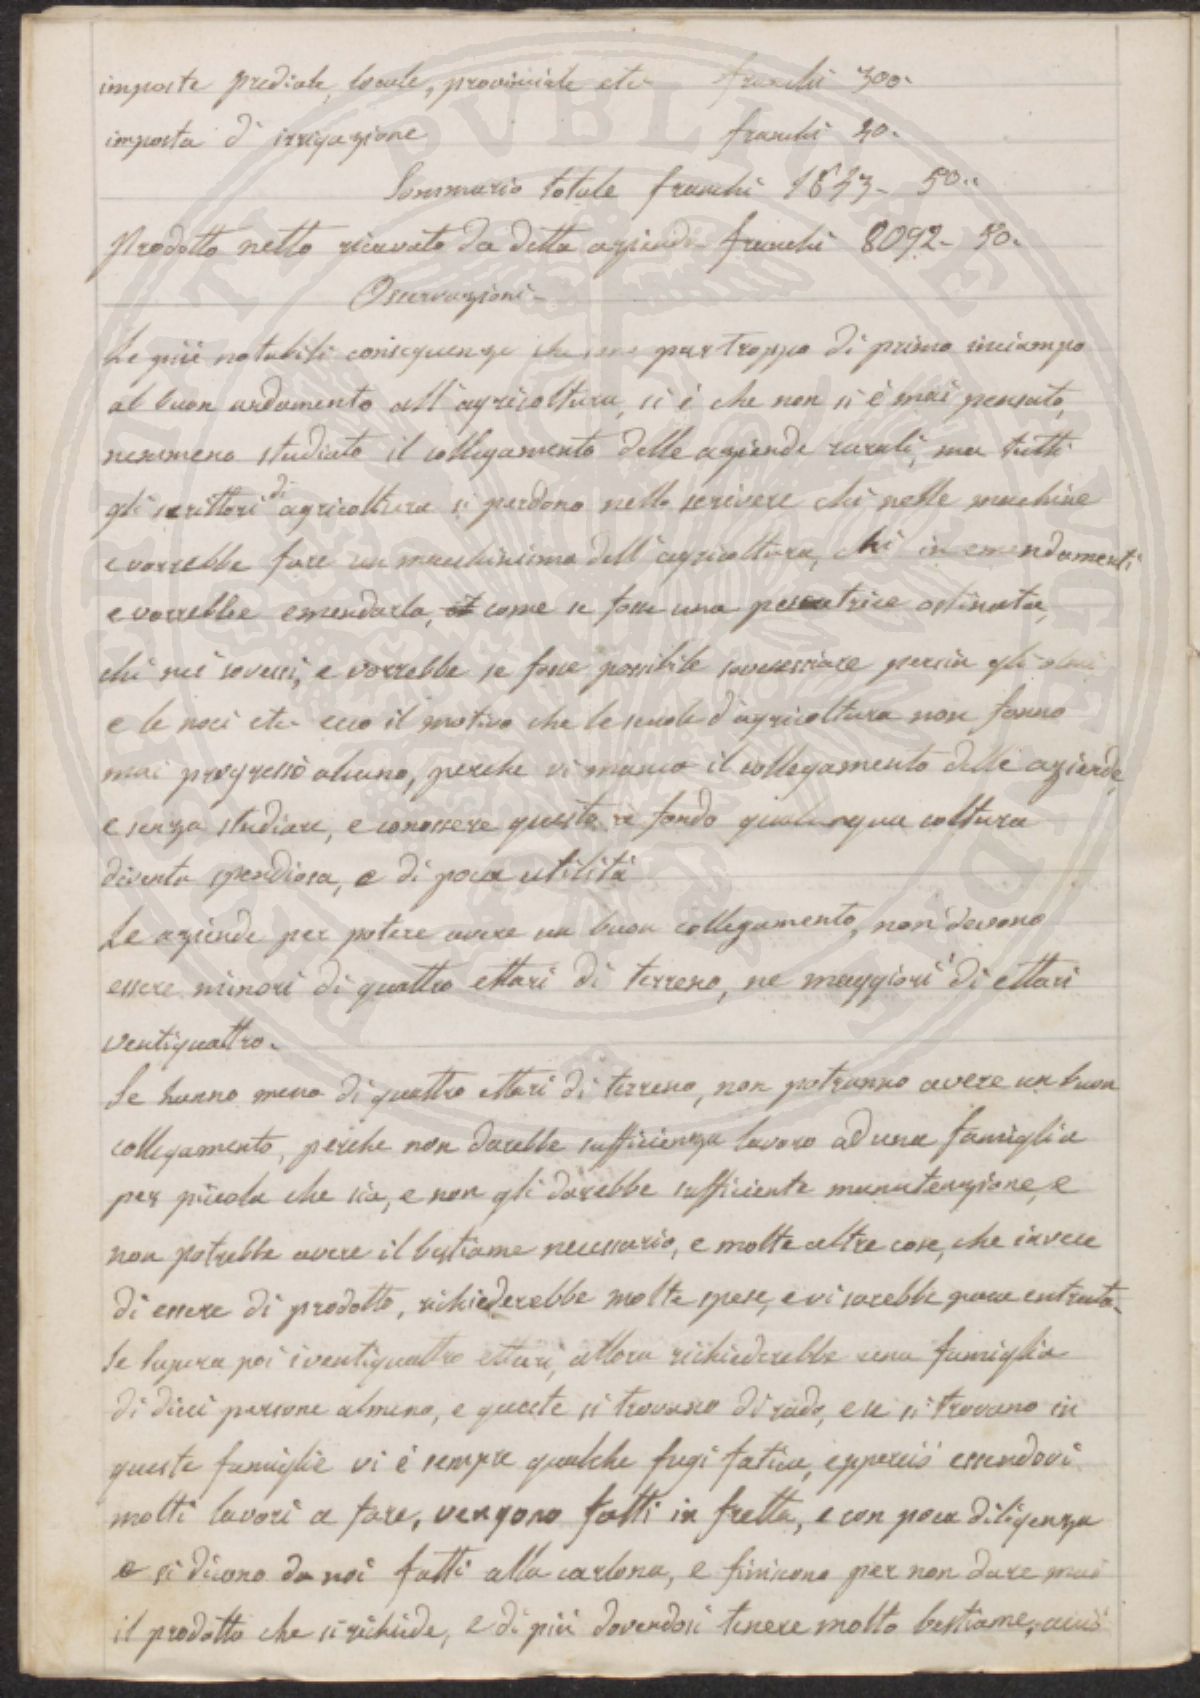 imposte prediale, locale, provinciale etc franchi 300.
imposta di irrigazione franchi 20.
Sommario totale franchi 1843- 50..
Prodotto netto ricavato da detta azienda franchi 8092- 50.
Osservazioni-
Le più notabili conseguenze che sono pur troppo di primo inciampo
al buon andamento all'agricoltura, si è che non si è mai pensato,
nemmeno studiato il collegamento delle aziende rurali, ma tutti
gli scrittori di agricoltura si perdono nello scrivere chi nelle machine
e vorrebbe fare un macchinismo dell'agricoltura, chi in emendamenti
e vorrebbe emendarla, come se fosse una peccatrice ostinata,
chi nei sovessi, e vorrebbe se fosse possibile sovesciare persin gli olmi
e le noci etc ecco il motivo che le scuole d'agricoltura non fanno
mai progresso alcuno, perche vi manca il collegamento delle aziende,
e senza studiare, e conossere queste a fondo qualunqua coltura
diventa spendiosa, e di poca utilità
Le aziende per potere avere un buon collegamento, non devono
essere minori di quattro ettari di terreno, ne maggiori di ettari
ventiquattro.
Se hanno meno di quattro ettari di terreno, non potranno avere un buon
collegamento, perche non darebbe sufficienza lavoro ad una famiglia
per piccola che sia, e non gli darebbe sufficiente manutenzione, e
non potrebbe avere il bestiame necessario, e molte altre cose, che invece
di essere di prodotto, richiederebbe molte spese, e vi sarebbe poca entrata-
Se supera poi i ventiquattro ettari, allora richiederebbe una famiglia
di dieci persone almeno, e queste si trovano di rado, e se si trovano in
queste famiglie vi è sempre qualche fugi fatica, epperciò essendovi
molti lavori a fare, vengono fatti in fretta, e con poca diligenza
e si dicono da noi fatti alla carlona, e finiscono per non dare mai
il prodotto che si richiede, e di più dovendosi tenere molto bestiame, acciò